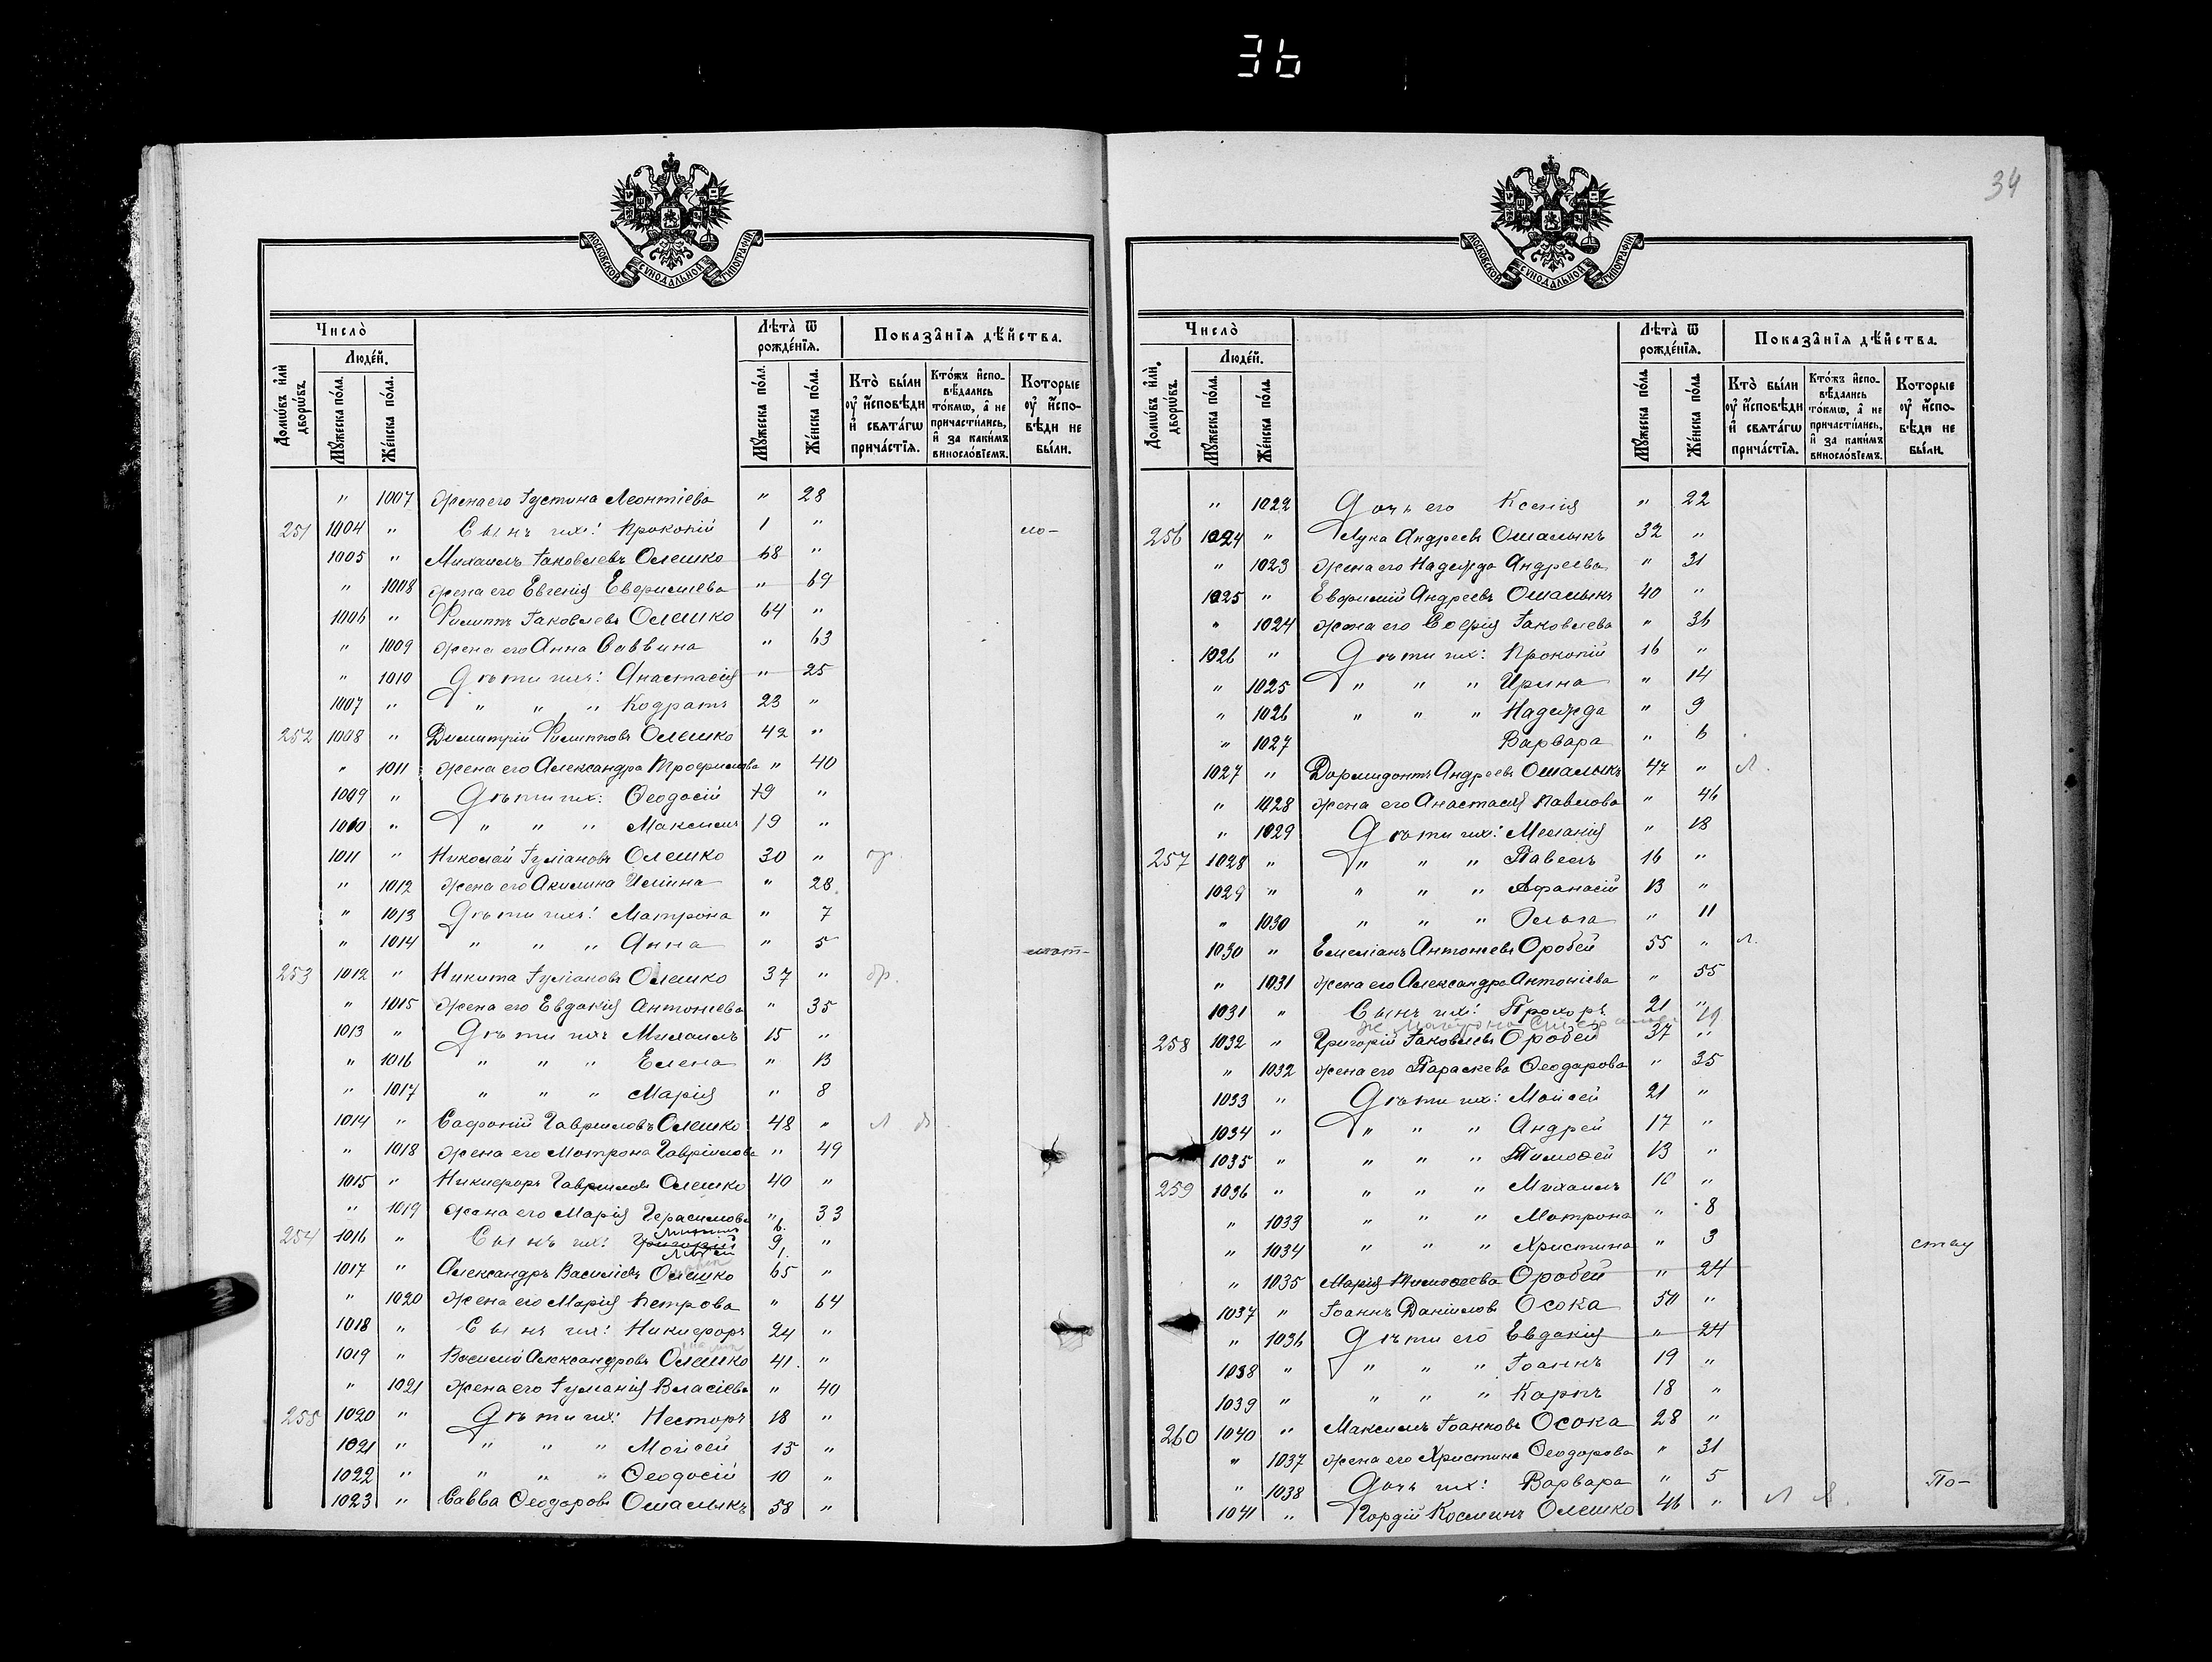 36
34
МОСКОВСКОЙ СѴНОДАЛЬНОЙ ТИПОГРАФІИ
Число̀
Люде́й.
Домѡ́въ и҆лѝ дворѡ́въ.
Мꙋ́жеска по́ла.
Же́нска по́ла.
Лѣта̀ ѿ рожде́нїѧ.
Мꙋ́жеска по́ла.
Же́нска по́ла.
Показа̑нїѧ дѣ́йства.
Кто̀ бы́ли оу҆ и҆́сповѣди и҆ свѧта́гѡ прича́стїѧ.
Кто́жъ и҆спо- вѣ́дались то́кмѡ, а҆ не причасти́лись, и҆ за каки́мъ винослов́їемъ.
Которые оу҆ и҆́спо- вѣди не бы́ли.
" 1007 жена его Іустина Леонтіева " 28
251 1004 " Сынъ ихъ: Прокопій 1 " ло-
1005 " Михаилъ Іаковлевъ Олешко 68 "
" 1008 жена его Евгенія Евфиміева " 69
1006 " Филиппъ Іаковлевъ Олешко 64 "
" 1009 жена его Анна Саввина " 63
" 1010 Дѣти ихъ: Анастасія " 25
1007 " " " " Кодратъ 23 "
252 1008 " Димитрій Филипповъ Олешко 42 "
" 1011 жена его Александра Трофимова " 40
1009 " Дѣти ихъ: Ѳеодосій 19 "
1010 " " " " Максимъ 19 "
1011 " Николай Іуліановъ Олешко 30 "
" 1012 жена его Акилина Иліина " 28
" 1013 Дѣти ихъ: Матрона " 7
" 1014 " " " Анна " 5
253 1012 " Никита Іуліановъ Олешко 37 "
" 1015 жена его Евдакія Антоніева " 35
1013 " Дѣти ихъ Михаилъ 15 "
" 1016 " " " Елена " 13
" 1017 " " " Марія " 8
1014 " Сафроній Гавріиловъ Олешко 48 "
" 1018 жена его Матрона Гавріилова " 49
1015 " Никифоръ Гавріиловъ Олешко 40 "
" 1019 жена его Марія Герасимова " 33
254 1016 " Сынъ ихъ: Григорій 9 "
1017 " Александръ Василіевъ Олешко 65 "
" 1020 жена его Марія Петрова " 64
1018 " Сынъ ихъ: Никифоръ 24 "
1019 " Василій Александровъ Олешко 41 "
" 1021 жена его Іуліанія Власіева " 40
255 1020 " Дѣти ихъ: Несторъ 18 "
1021 " " " " Моисей 15 "
1022 " " " " Ѳеодосій 10 "
1023 " Савва Ѳеодоровъ Ошалыкъ 58 "
МОСКОВСКОЙ СѴНОДАЛЬНОЙ ТИПОГРАФІИ
Число̀
Люде́й.
Домѡ́въ и҆лѝ дворѡ́въ.
Мꙋ́жеска по́ла.
Же́нска по́ла.
Лѣта̀ ѿ рожде́нїѧ.
Мꙋ́жеска по́ла.
Же́нска по́ла.
Показа̑нїѧ дѣ́йства.
Кто̀ бы́ли оу҆ и҆́сповѣди и҆ свѧта́гѡ прича́стїѧ.
Кто́жъ и҆спо- вѣ́дались то́кмѡ, а҆ не причасти́лись, и҆ за каки́мъ винослов́їемъ.
Которые оу҆ и҆́спо- вѣди не бы́ли.
" 1022 Дочь его Ксенія " 22
256 1024 " Лука Андреевъ Ошалыкъ 32 "
" 1023 жена его Надежда Андреева " 31
1025 " Евфимій Андреевъ Ошалыкъ 40 "
" 1024 жена его Софія Іаковлева " 36
1026 " Дѣти ихъ: Прокопій 16 "
" 1025 " " " Ирина " 14
" 1026 " " " Надежда " 9
" 1027 Варвара " 6
1027 " Дормидонтъ Андреевъ Ошалыкъ 47 " Л.
" 1028 жена его Анастасія Павлова " 46
" 1029 Дѣти ихъ: Меланія " 18
257 1028 " " " " Павелъ 16 "
1029 " " " " Афанасій 13 "
" 1030 " " " Ольга " 11
1030 " Емеліанъ Антоніевъ Оробей 55 " Л.
" 1031 жена его Александра Антоніева " 55
1031 " Сынъ ихъ: Прохоръ 21 "
ж. Матрона 19
258 1032 " Григорій Іаковлевъ Оробей 37 "
" 1032 жена его Параскева Ѳеодорова " 35
1033 " Дѣти ихъ: Моисей 21 "
1034 " " " " Андрей 17 "
1035 " " " " Тимоѳей 13 "
259 1036 " " " " Михаилъ 10 "
" 1033 " " " Матрона " 8
" 1034 " " " Христина " 3
" 1035 Марія Тимоѳеева Оробей " 24
1037 " Іоаннъ Даніиловъ Осока 50 "
" 1036 Дѣти его Евдакія " 24
1038 " " " " Іоаннъ 19 "
1039 " " " " Карпъ 18 "
260 1040 " Максимъ Іоанновъ Осока 28 "
" 1037 жена его Христина Ѳеодорова " 31
" 1038 Дочь ихъ: Варвара " 5 По-
1041 " Гордій Косминъ Олешко 46 "